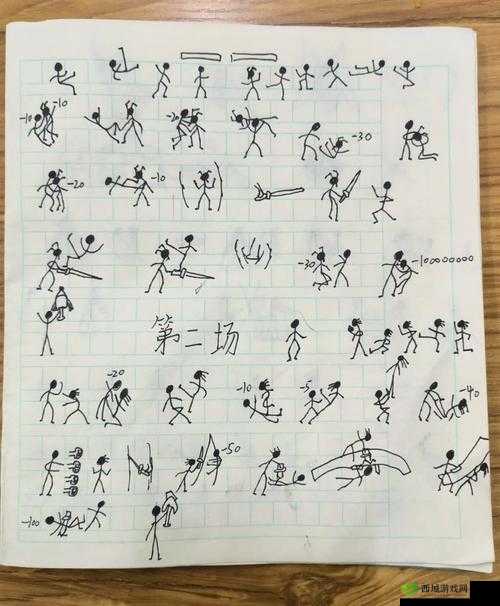 -10 -10 -20 -30
-20 -10
-30 -100000000
第二场
-20 -10 -5 -40
-50
-100
西城游戏网